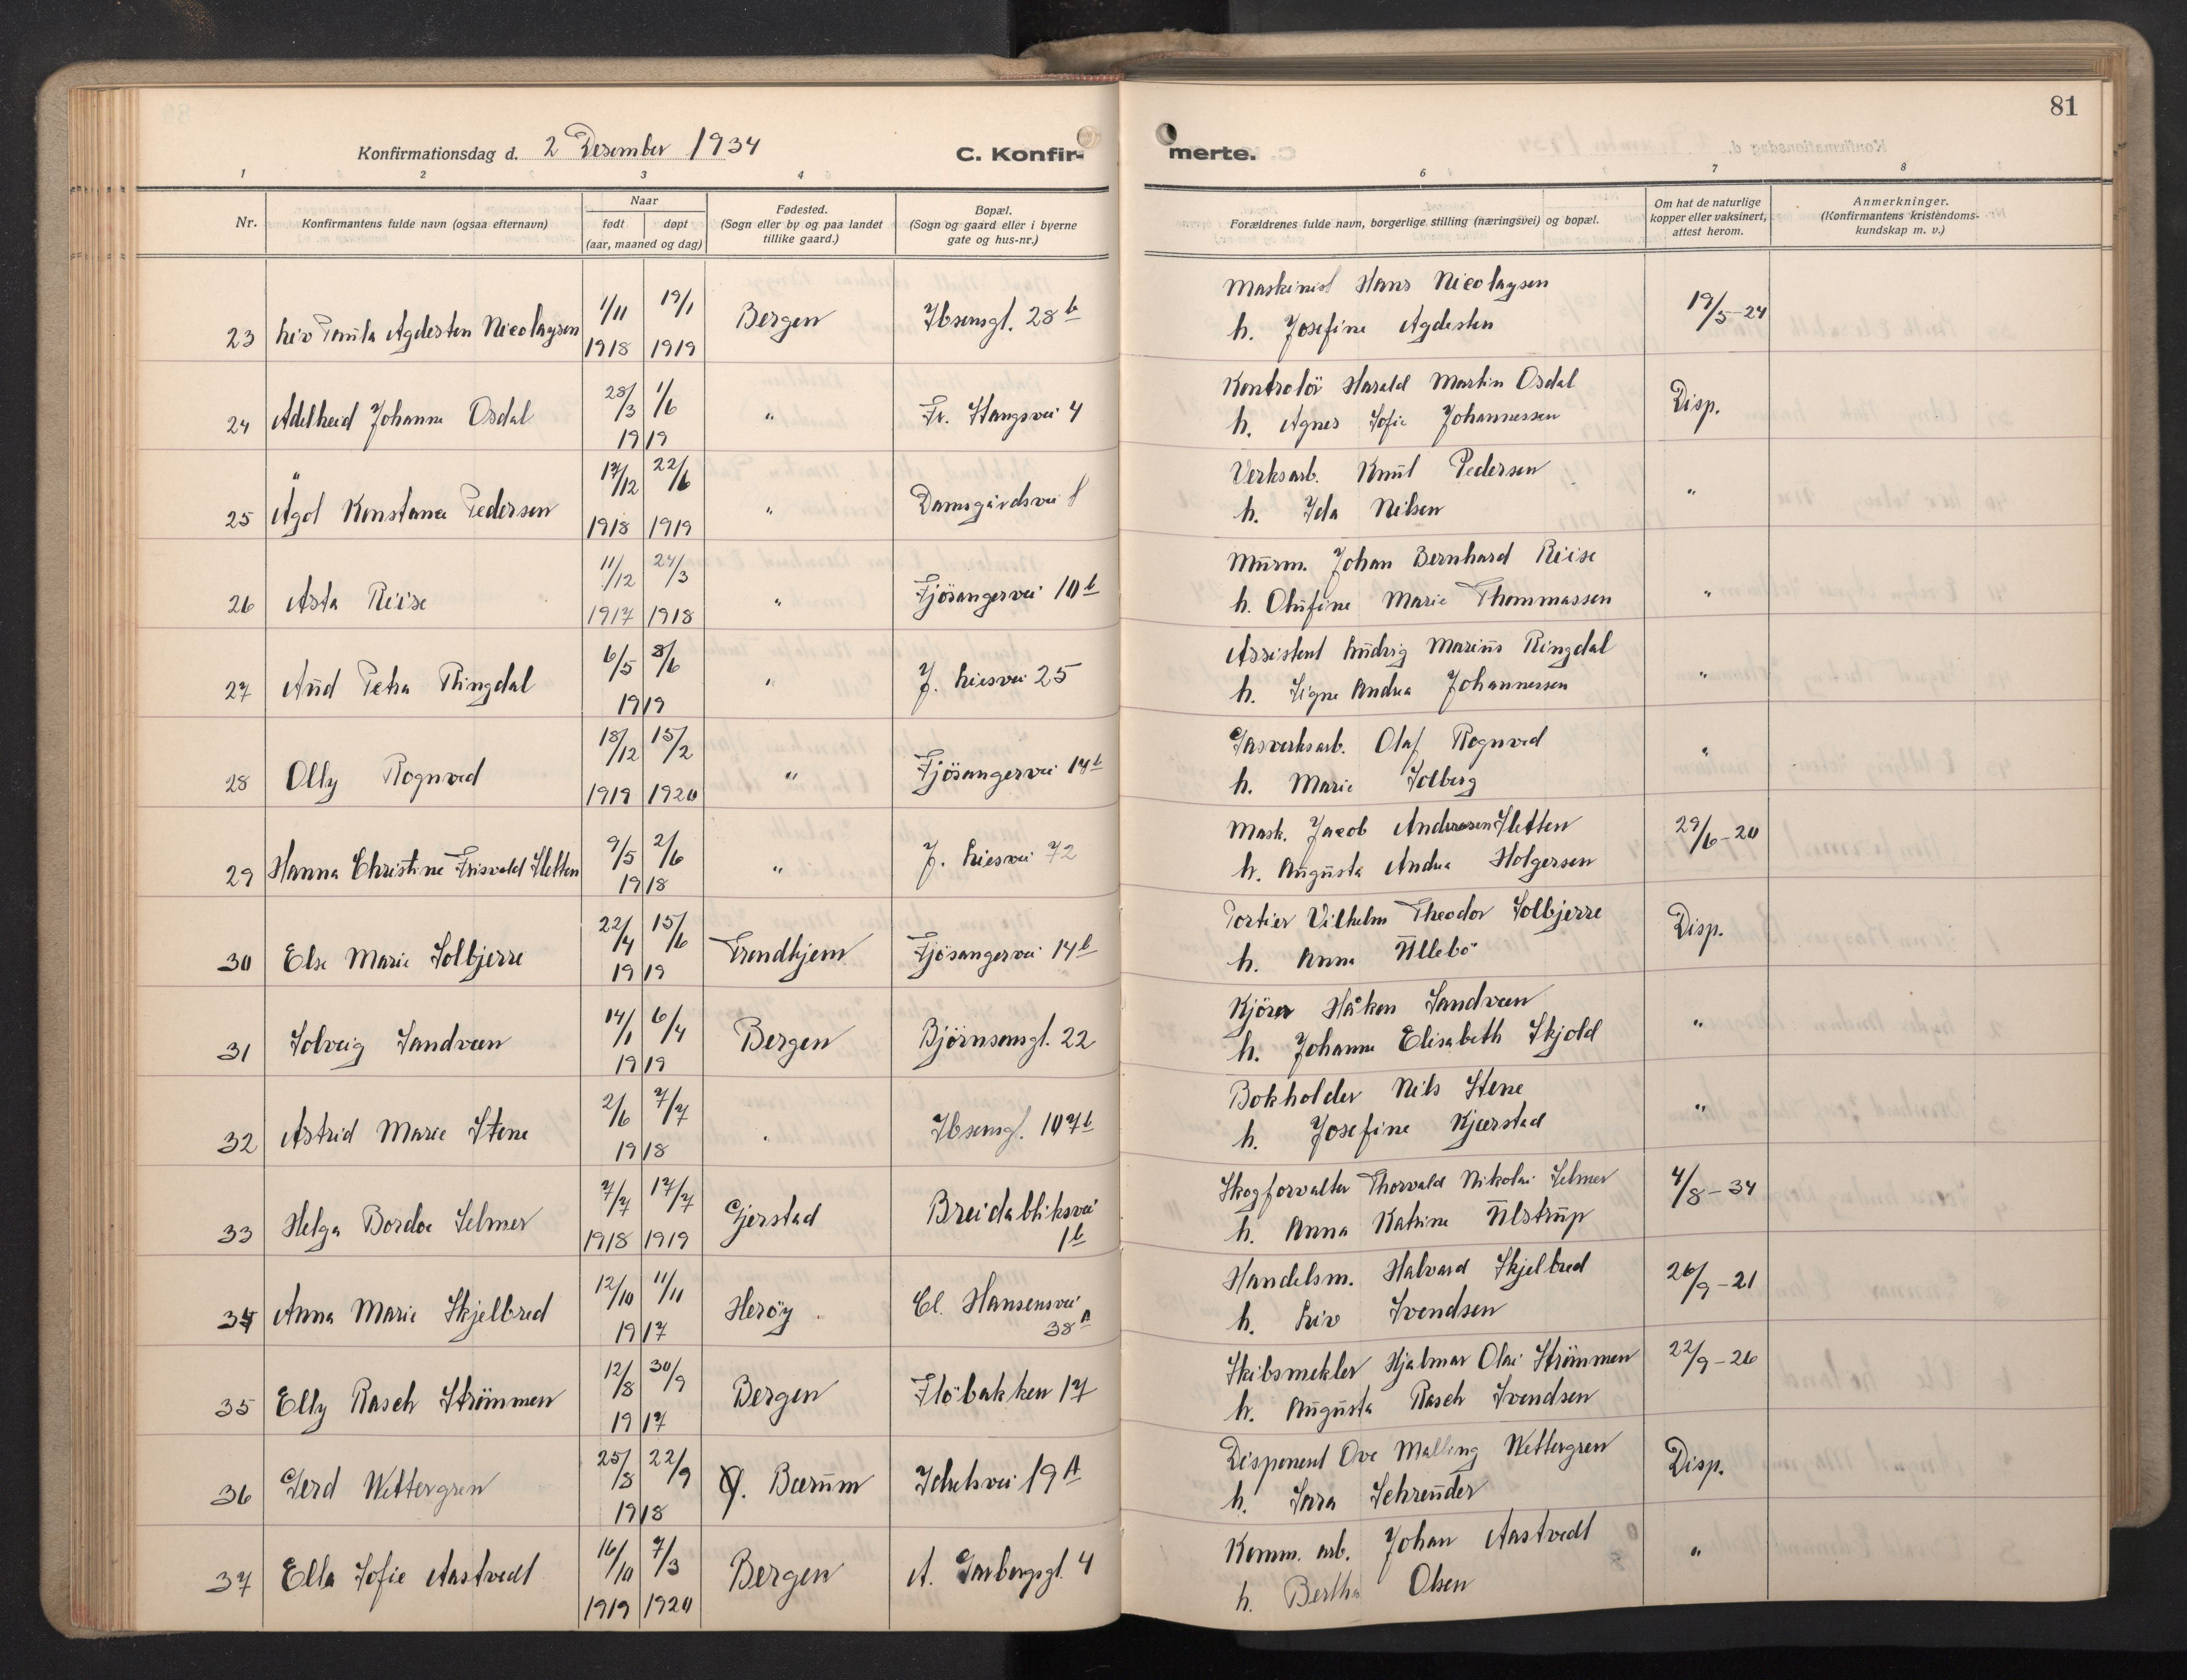 81
Konfirmationsdag d. 2 Desember 1934
C. Konfir-
merte.
1 2 3 4 6 7 8
Nr.
Konfirmantens fulde navn (ogsaa efternavn)
Naar
født døpt
(aar, maaned og dag)
Fødested.
(Sogn eller by og paa landet
tillike gaard.)
Bopæl.
(Sogn og gaard eller i byerne
gate og hus-nr.)
Forældrenes fulde navn, borgerlige stilling (næringsvei) og bopæl.
Om hat de naturlige
kopper eller vaksinert,
attest herom.
Anmerkninger.
(Konfirmantens kristendoms-
kundskap m. v.)
1/11 19/1 Maskinist Hans Nicolaysen
23 Liv Agdesten Nicolaysen 1918 1919 Bergen Ibsensgt. 28 b h. Josefine Agdesten 19/5-24
28/3 1/6 Kontrolör Harald Martin Osdal
24 Adelheid Johanne Osdal 1919 " Fr. Stangsvei 4 h. Agnes Sofie Johannessen Disp.
17/12 22/6 Verksarb. Knut Pedersen
25 Ågot Konstance Pedersen 1918 1919 " Damsgårdsvei h. Ida Nilsen "
11/12 24/3 Murm. Johan Bernhard Reise
26 Asta Reise 1917 1918 " Fjösangervei 10 b h. Olufine Marie Thommassen "
6/5 8/6 Assistent Ludvig Marius Ringdal
27 Aud Petra Ringdal 1919 " J. Liesvei 25 h. Signe Andrea Johannessen "
18/12 15/2 Gasverksarb. Olaf Rognved
28 Olly Rognved 1919 1920 " Fjösangervei 14 b h. Marie Solberg "
9/5 2/6 Mask. Jacob Andreasen Sletten
29 Hanna Christine Frisvold Sletten 1918 " J. Liesvei 72 h. Augusta Andrea Holgersen 29/6-20
22/4 15/6 Portier Vilhelm Theodor Solbjerre
30 Else Marie Solbjerre 1919 Trondhjem Fjösangervei 14 b h. Anna Ullebö Disp.
14/1 6/4 Kjörer Håkon Sandveen
31 Solveig Sandveen 1919 Bergen Bjørnsonsgt. 22 h. Johanne Elisabeth Skjold "
2/6 7/7 Bokholder Nils Stene
32 Astrid Marie Stene 1918 " Ibsensgt. 107 b h. Josefine Kjærstad "
7/7 17/7 Skogforvalter Thorvald Nikolai Selmer
33 Helga Bordoe Selmer 1918 1919 Gjerstad Breidabliksvei 1 b h. Anna Katrine Ulstrup 4/8-34
12/10 11/11 Handelsm. Halvard Skjelbred
34 Anna Marie Skjelbred 1917 Herøy Cl. Hansensvei 38 A h. Liv Svendsen 26/9-21
12/8 30/9 Skibsmekler Hjalmar Olai Strömmen
35 Elly Rasch Strömmen 1917 Bergen Flöbakken 17 h. Augusta Rasch Svendsen 22/9-26
25/8 22/9 Disponent Ove Malling Wettergren
36 Gerd Wettergren 1918 Ø. Bærum Idretsvei 19 A h. Sara Schreuder Disp.
16/10 7/3 Komm. arb. Johan Aastvedt
37 Ella Sofie Aastvedt 1919 1920 Bergen A. Garborgsgt. 4 h. Bertha Olsen "